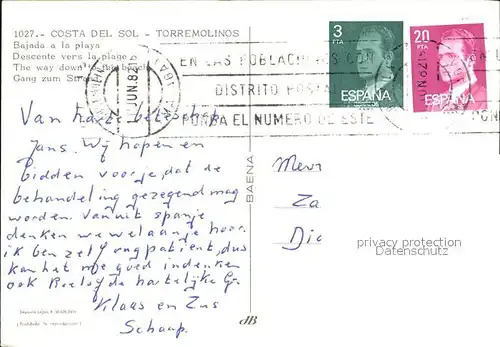 1027.- COSTA DEL SOL - TORREMOLINOS
Bajada a la playa
Descente vers la plage
The way down to the beach
Gang zum Strand
JUN. 82
EN LAS POBLACIONES CON
DISTRITO POSTAL
PONGA EL NUMERO DE ESTE
3
PTA
ESPAÑA
20
PTA
ESPAÑA
Van harte beterschap
Jans. Wij hopen en
bidden voor je, dat de
behandeling gezegend mag
worden. Vanuit spanje
denken we wel aan je hoor.
ik ben zelf ong patient, dus
kan het me goed indenken
ook Roeloy de hartelijke Gr.
Klaas en Zus
Schaap.
BAENA
Mevr
Za
Die
privacy protection
Datenschutz
(Prohibida la reproducción)
dB